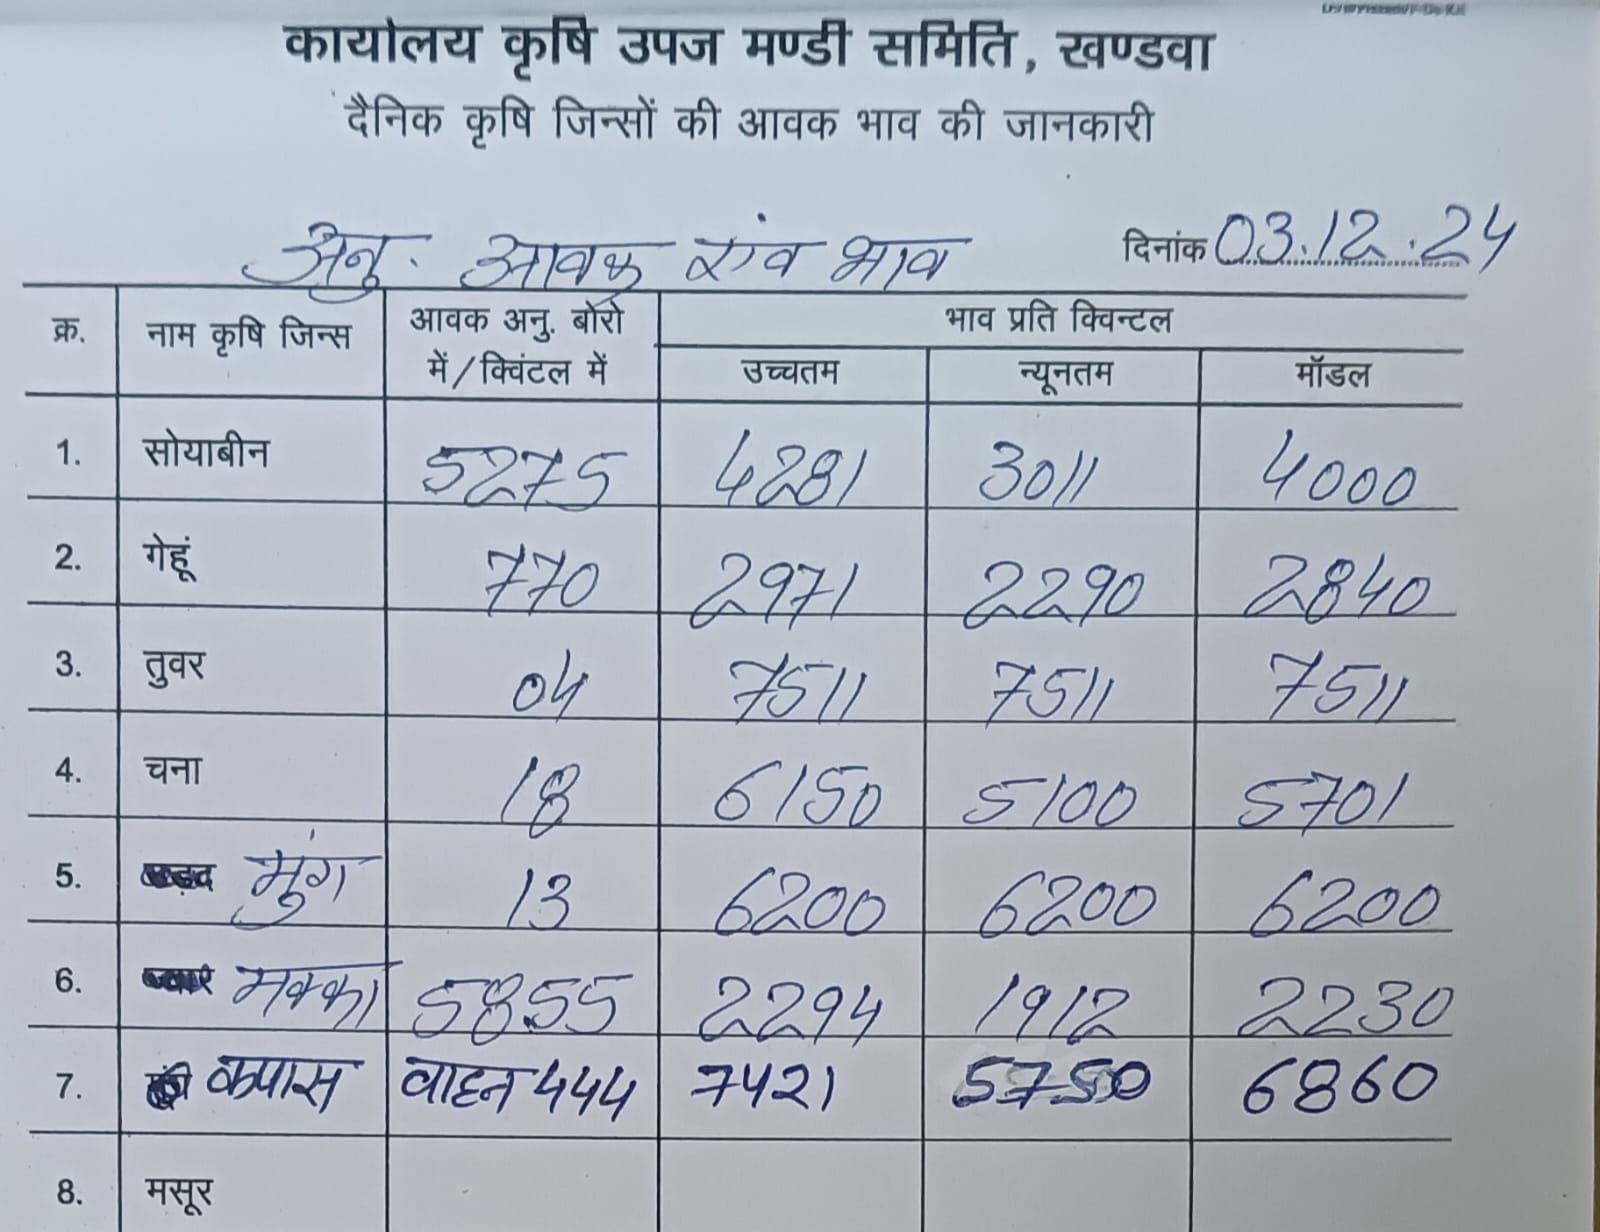 कार्यालय कृषि उपज मण्डी समिति, खण्डवा
दैनिक कृषि जिन्सों की आवक भाव की जानकारी
अनु. आवक एंव भाव दिनांक 03.12.24
क्र. नाम कृषि जिन्स आवक अनु. बोरो में/क्विंटल में भाव प्रति क्विन्टल
उच्चतम न्यूनतम मॉडल
1. सोयाबीन 5275 4281 3011 4000
2. गेहूं 770 2971 2290 2840
3. तुवर 04 7511 7511 7511
4. चना 18 6150 5100 5701
5. मुंग 13 6200 6200 6200
6. मक्का 5855 2294 1912 2230
7. कपास वाहन 444 7421 5750 6860
8. मसूर